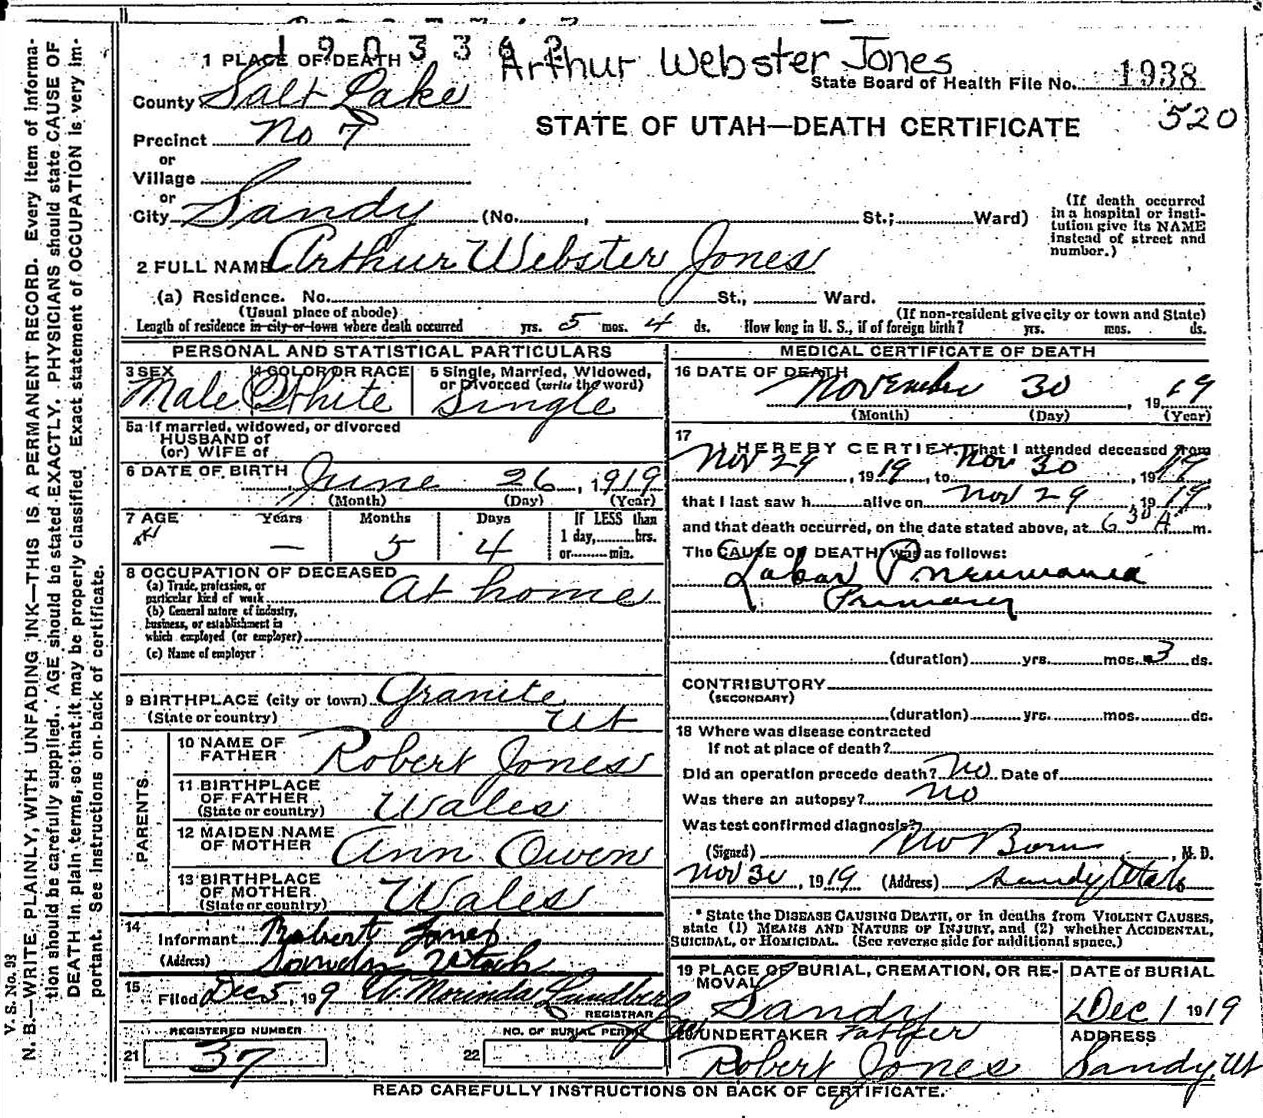 1903342
Arthur Webster Jones
1 PLACE OF DEATH
State Board of Health File No. 1938
County Salt Lake
520
STATE OF UTAH—DEATH CERTIFICATE
Precinct No 7
or
Village
or
City Sandy (No. , St.; Ward)
(If death occurred in a hospital or insti-
tution give its NAME
instead of street and
number.)
2 FULL NAME Arthur Webster Jones
(a) Residence. No. St., Ward.
(Usual place of abode) (If non-resident give city or town and State)
Length of residence in city or town where death occurred yrs. 5 mos. 4 ds. How long in U. S., if of foreign birth? yrs. mos. ds.
PERSONAL AND STATISTICAL PARTICULARS
3 SEX Male
4 COLOR OR RACE White
5 Single, Married, Widowed,
or Divorced (write the word)
Single
5a If married, widowed, or divorced
HUSBAND of
(or) WIFE of
6 DATE OF BIRTH June 26, 1919
(Month) (Day) (Year)
7 AGE Years Months Days If LESS than
1 day, hrs.
or min.
— 5 4
8 OCCUPATION OF DECEASED
(a) Trade, profession, or
particular kind of work At home
(b) General nature of industry,
business, or establishment in
which employed (or employer)
(c) Name of employer
9 BIRTHPLACE (city or town) Granite
(State or country) Ut
PARENTS
10 NAME OF
FATHER Robert Jones
11 BIRTHPLACE
OF FATHER
(State or country) Wales
12 MAIDEN NAME
OF MOTHER Ann Owen
13 BIRTHPLACE
OF MOTHER
(State or country) Wales
14
Informant Robert Jones
(Address) Sandy Utah
15
Filed Dec 5, 19 9 Morinda Lundberg
REGISTRAR
REGISTERED NUMBER NO. OF BURIAL PERMIT
21 37 22
MEDICAL CERTIFICATE OF DEATH
16 DATE OF DEATH
November 30, 1919
(Month) (Day) (Year)
17
I HEREBY CERTIFY, That I attended deceased from
Nov 29, 1919, to Nov 30, 1919
that I last saw h alive on Nov 29, 1919,
and that death occurred, on the date stated above, at 6 30 A m.
The CAUSE OF DEATH was as follows:
Lobar Pneumonia
Primary
(duration) yrs. mos. 3 ds.
CONTRIBUTORY
(SECONDARY)
(duration) yrs. mos. ds.
18 Where was disease contracted
if not at place of death?
Did an operation precede death? No Date of
Was there an autopsy? No
Was test confirmed diagnosis?
(Signed) , M. D.
Nov 30, 1919 (Address) Sandy Utah
* State the DISEASE CAUSING DEATH, or in deaths from VIOLENT CAUSES,
state (1) MEANS AND NATURE OF INJURY, and (2) whether ACCIDENTAL,
SUICIDAL, or HOMICIDAL. (See reverse side for additional space.)
19 PLACE OF BURIAL, CREMATION, OR RE-
MOVAL
Sandy
DATE of BURIAL
Dec 1 1919
20 UNDERTAKER Father
Robert Jones
ADDRESS
Sandy Ut
READ CAREFULLY INSTRUCTIONS ON BACK OF CERTIFICATE.
V. S. No. 93
N. B.—WRITE PLAINLY, WITH UNFADING INK—THIS IS A PERMANENT RECORD. Every item of informa-
tion should be carefully supplied. AGE should be stated EXACTLY. PHYSICIANS should state CAUSE OF
DEATH in plain terms, so that it may be properly classified. Exact statement of OCCUPATION is very im-
portant. See instructions on back of certificate.